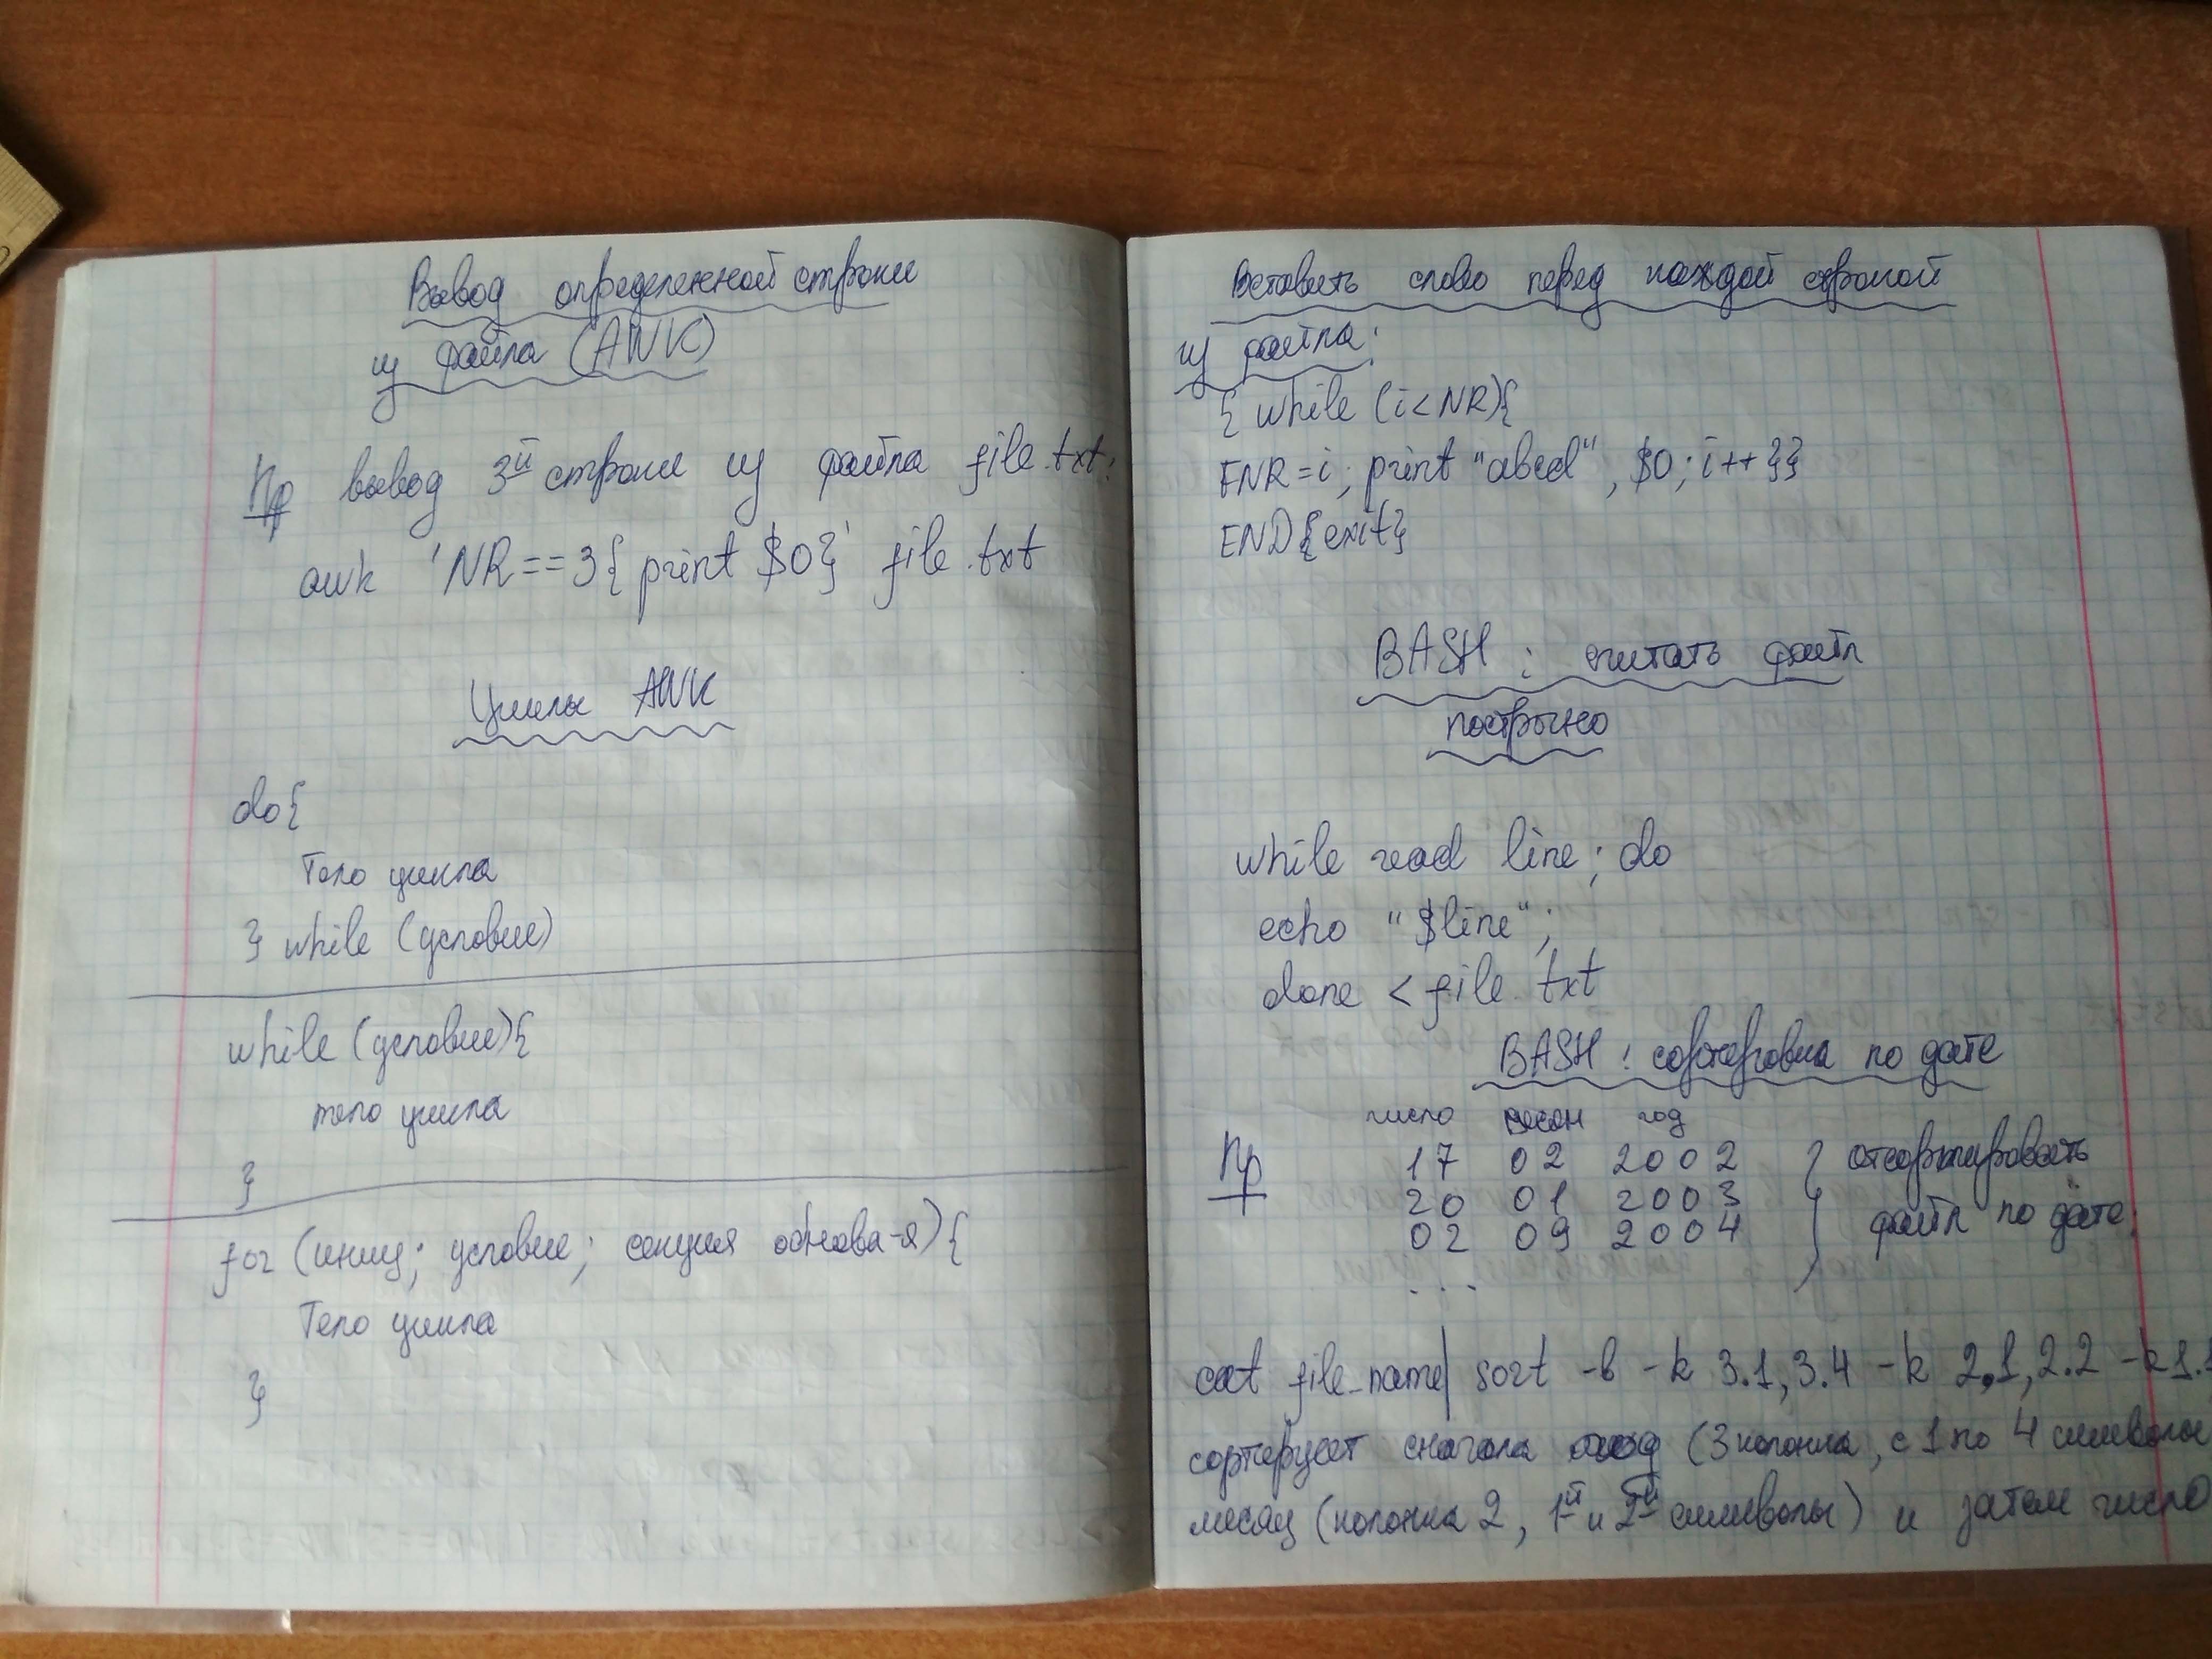 Вывод определенной строки
из файла (AWK)
Пр вывод 3й строки из файла file.txt:
awk 'NR==3{print $0}' file.txt
Циклы AWK
do{
Тело цикла
} while (условие)
while (условие){
тело цикла
}
for (иниц; условие; секция обнова-я){
Тело цикла
}
Вставить слово перед каждой строкой
из файла:
{ while (i<NR){
FNR=i; print "abcd", $0; i++}}
END{exit}
BASH: считать файл
построчно
while read line; do
echo "$line";
done < file.txt
BASH: сортировка по дате
число месяц год
Пр 17 02 2002 } отсортировать
20 01 2003
02 09 2004 файл по дате
...
cat file_name| sort -b -k 3.1,3.4 -k 2.1,2.2 -k1.1
сортирует сначала год (3 колонка, с 1 по 4 символы
месяц (колонка 2, 1й и 2й символы) и затем число